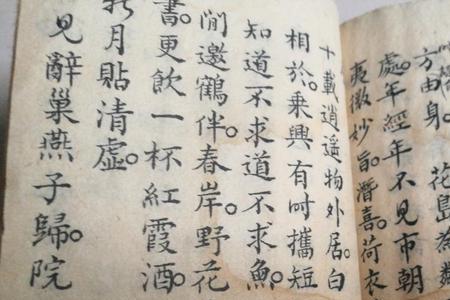 方由身。花島為
處。年經年不見市朝
夷微妙旨。潛喜荷衣
十載逍遥物外居。白
相於。乘興有时攜短
知道不求道不求魚。
閒邊鶴伴春岸。野花
書。更飲一杯紅霞酒。
月貼清虛。
見辭巢燕子歸。院